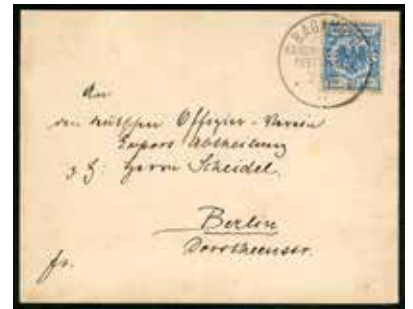 BAGAM
An
den deutschen Offizier-Verein
Export Abtheilung
z. H. Herrn Scheidel
Berlin
Dorotheenstr.
fr.